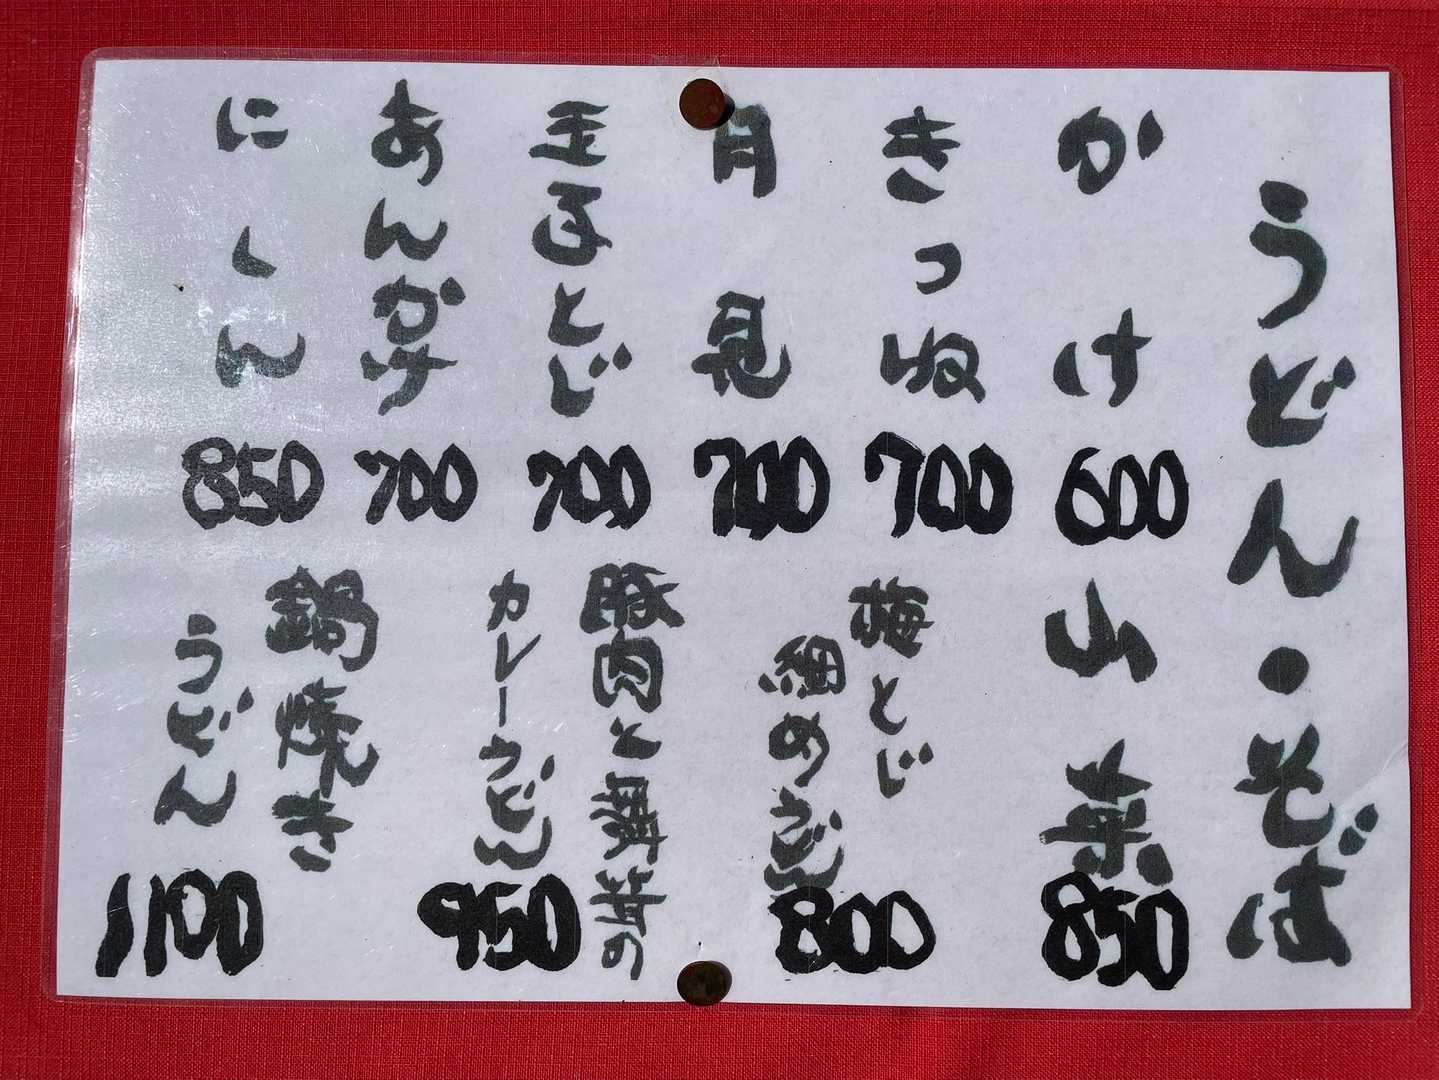 うどん・そば
かけ
600
きつね
700
月見
700
玉子とじ
700
あんかけ
700
にしん
850
山菜
850
梅とじ
細めうどん
800
豚肉と舞茸の
カレーうどん
950
鍋焼き
うどん
1100